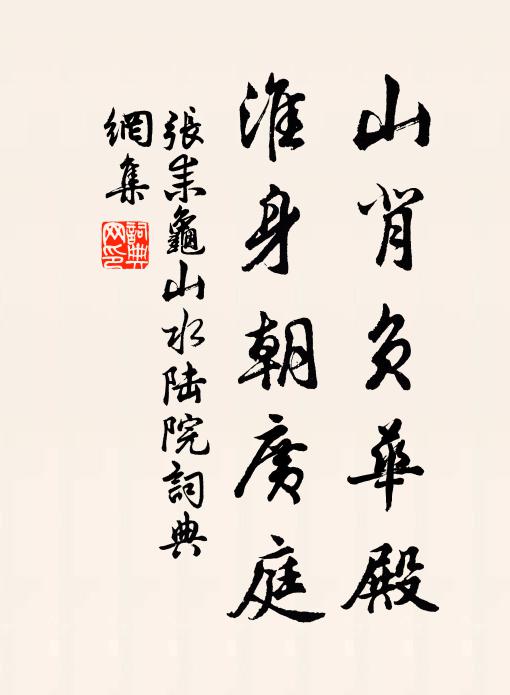 山背負華殿
淮身朝廣庭
張耒龜山水陸院詞典
網集
詞典網印